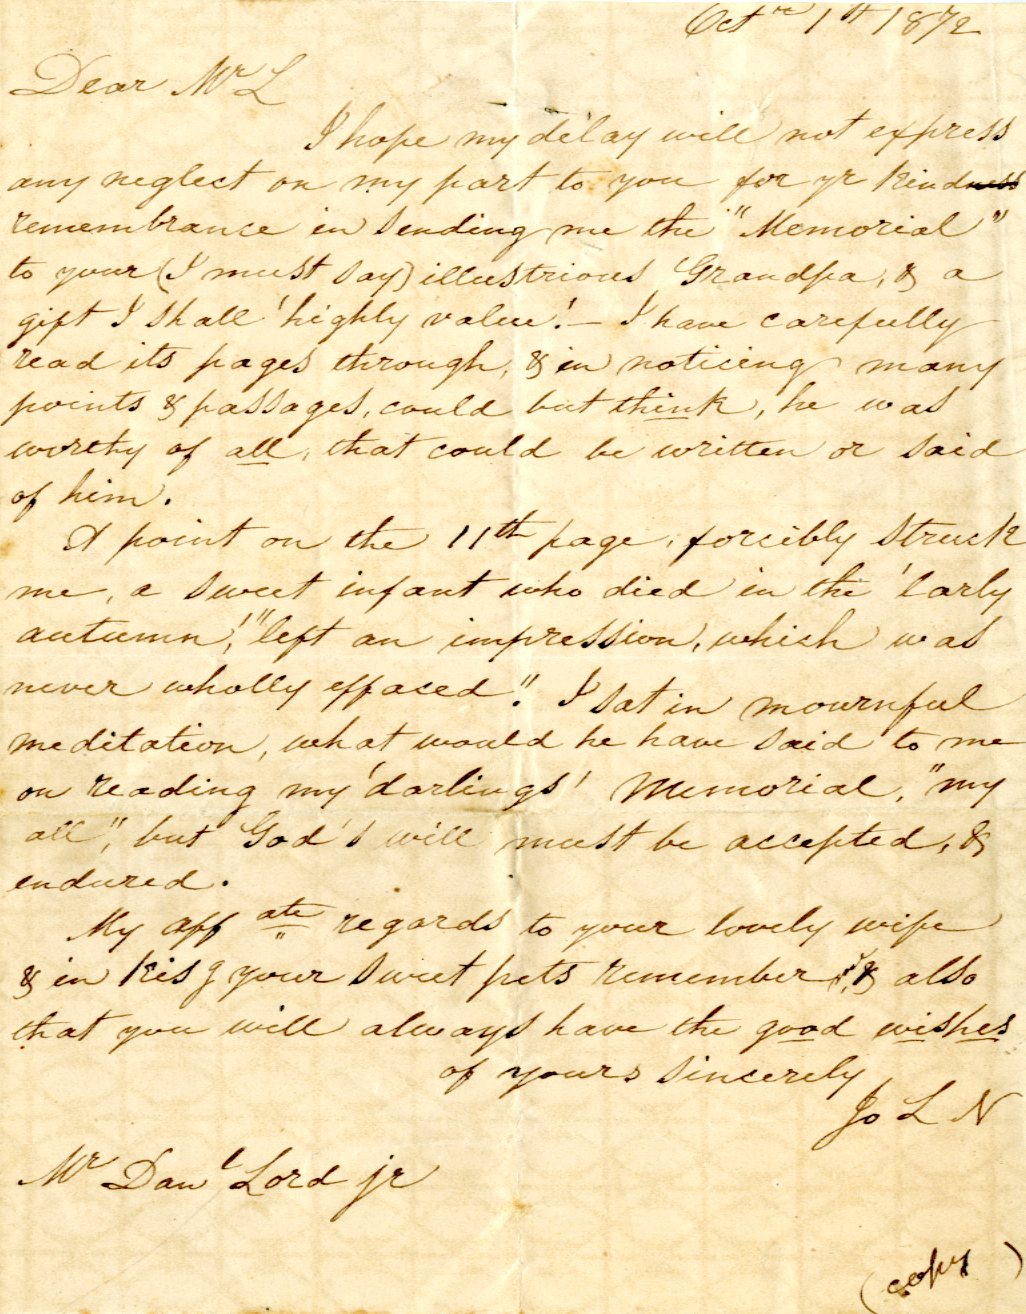 Octre 1th 1872
Dear Mr L
I hope my delay will not express
any neglect on my part to you for yr kindness
remembrance in sending me the "Memorial"
to your (I must say) illustrious Grandpa, & a
gift I shall 'highly value'! — I have carefully
read its pages through, & in noticeing many
points & passages, could but think, he was
worthy of all, that could be written or said
of him.
A point on the 11th page, forcibly struck
me, a sweet infant who died in the 'early
autumn', "left an impression, which was
never wholly effaced". I sat in mournful
meditation, what would he have said to me
on reading my 'darlings' Memorial, "my
all", but God's will must be accepted, &
endured.
My affate regards to your lovely wife
& in kisg your sweet pets remember & also
that you will always have the good wishes
of yours sincerely
Jo L N
Mr Danl Lord jr
(copy)